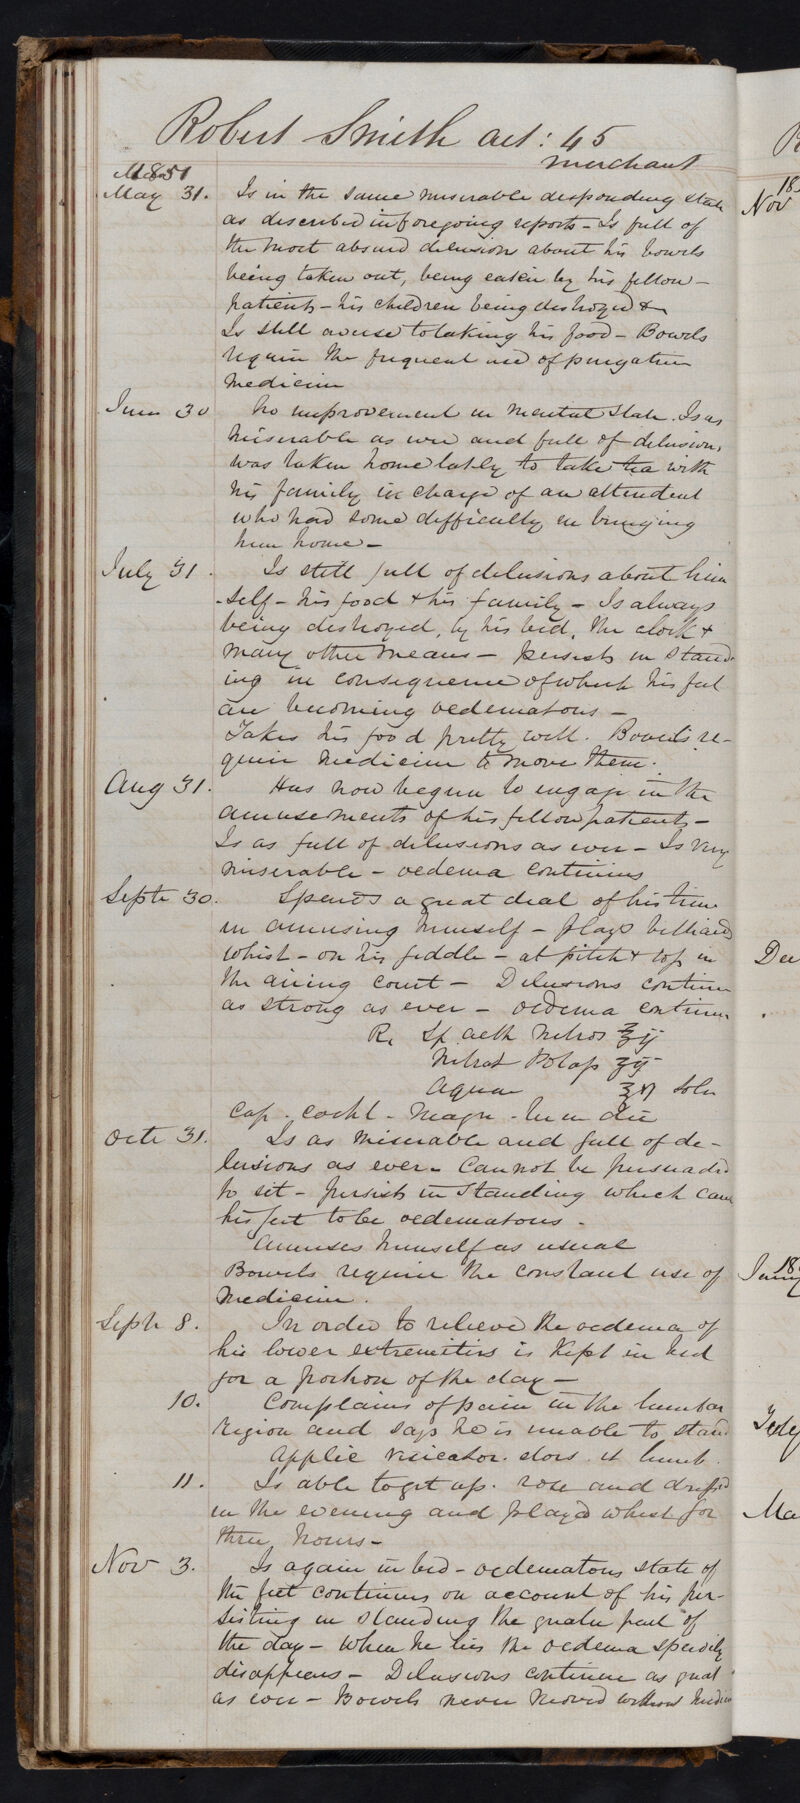 Robert Smith aet: 45
merchant
1851
May 31. Is in the same miserable desponding state
as described in foregoing reports - Is full of
the most absurd delusions about his bowels
being taken out, being eaten by his fellow-
patients - his children being destroyed &
Is still averse to taking his food - Bowels
require the frequent use of purgative
medicine
June 30 No improvement in mental state. Is as
miserable as ever and full of delusions,
was taken home lately to take tea with
his family in charge of an attendant
who had some difficulty in bringing
him home -
July 31. Is still full of delusions about him
-self - his food & his family - Is always
being destroyed, by his bed, the clock &
many other means - persists in stand-
ing in consequence of which his feet
are becoming oedematous -
Takes his food pretty well. Bowels re-
quire medicine to move them.
Aug 31. Has now begun to engage in the
amusements of his fellow patients -
Is as full of delusions as ever - Is very
miserable - oedema continues
Septr 30. Spends a great deal of his time
in amusing himself - plays billiards
whist - on his fiddle - at pitch & toss in
the airing court - Delusions continue
as strong as ever - oedema continues
Rx Sp aeth Nitros ʒij
Nitrat Potass ʒij
Aquae ℥vj Solv
Cap. cochl. magn. ter in die
Octr 31. Is as miserable and full of de-
lusions as ever - Cannot be persuaded
to sit - persists in standing which cause
his feet to be oedematous -
Amuses himself as usual
Bowels require the constant use of
medicine.
Septr 8. In order to relieve the oedema of
his lower extremities is kept in bed
for a portion of the day -
10. Complains of pain in the lumbar
region and says he is unable to stand
Applic vesicator. dors. et lumb.
11. Is able to get up. rose and dressed
in the evening and play'd whist for
three hours -
Nov 3. Is again in bed - oedematous state of
the feet continues on account of his per-
sisting in standing the greater part of
the day - when he lies the oedema speedily
disappears - Delusions continue as great
as ever - Bowels never moved without medicine
Nov